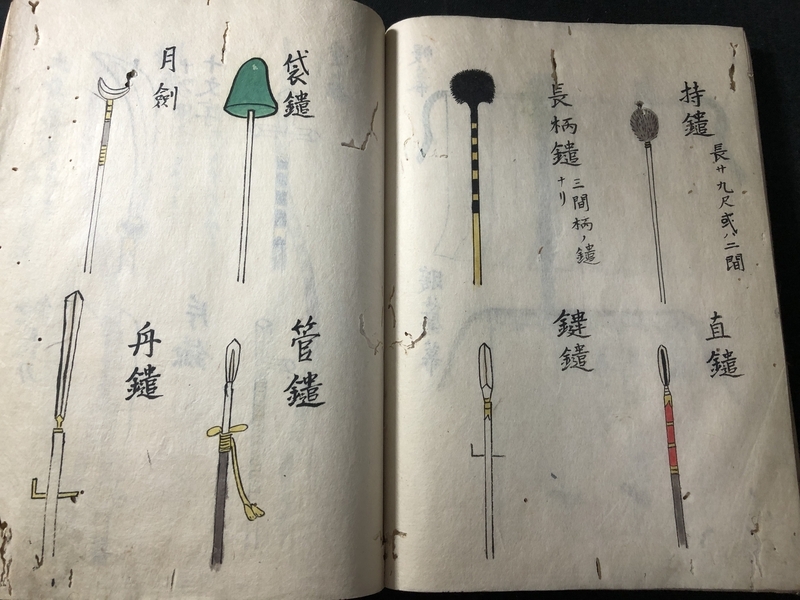 持鑓
長サ九尺或ハ二間
直鑓
長柄鑓
三間柄ノ鑓
ナリ
鍵鑓
袋鑓
管鑓
月劍
舟鑓